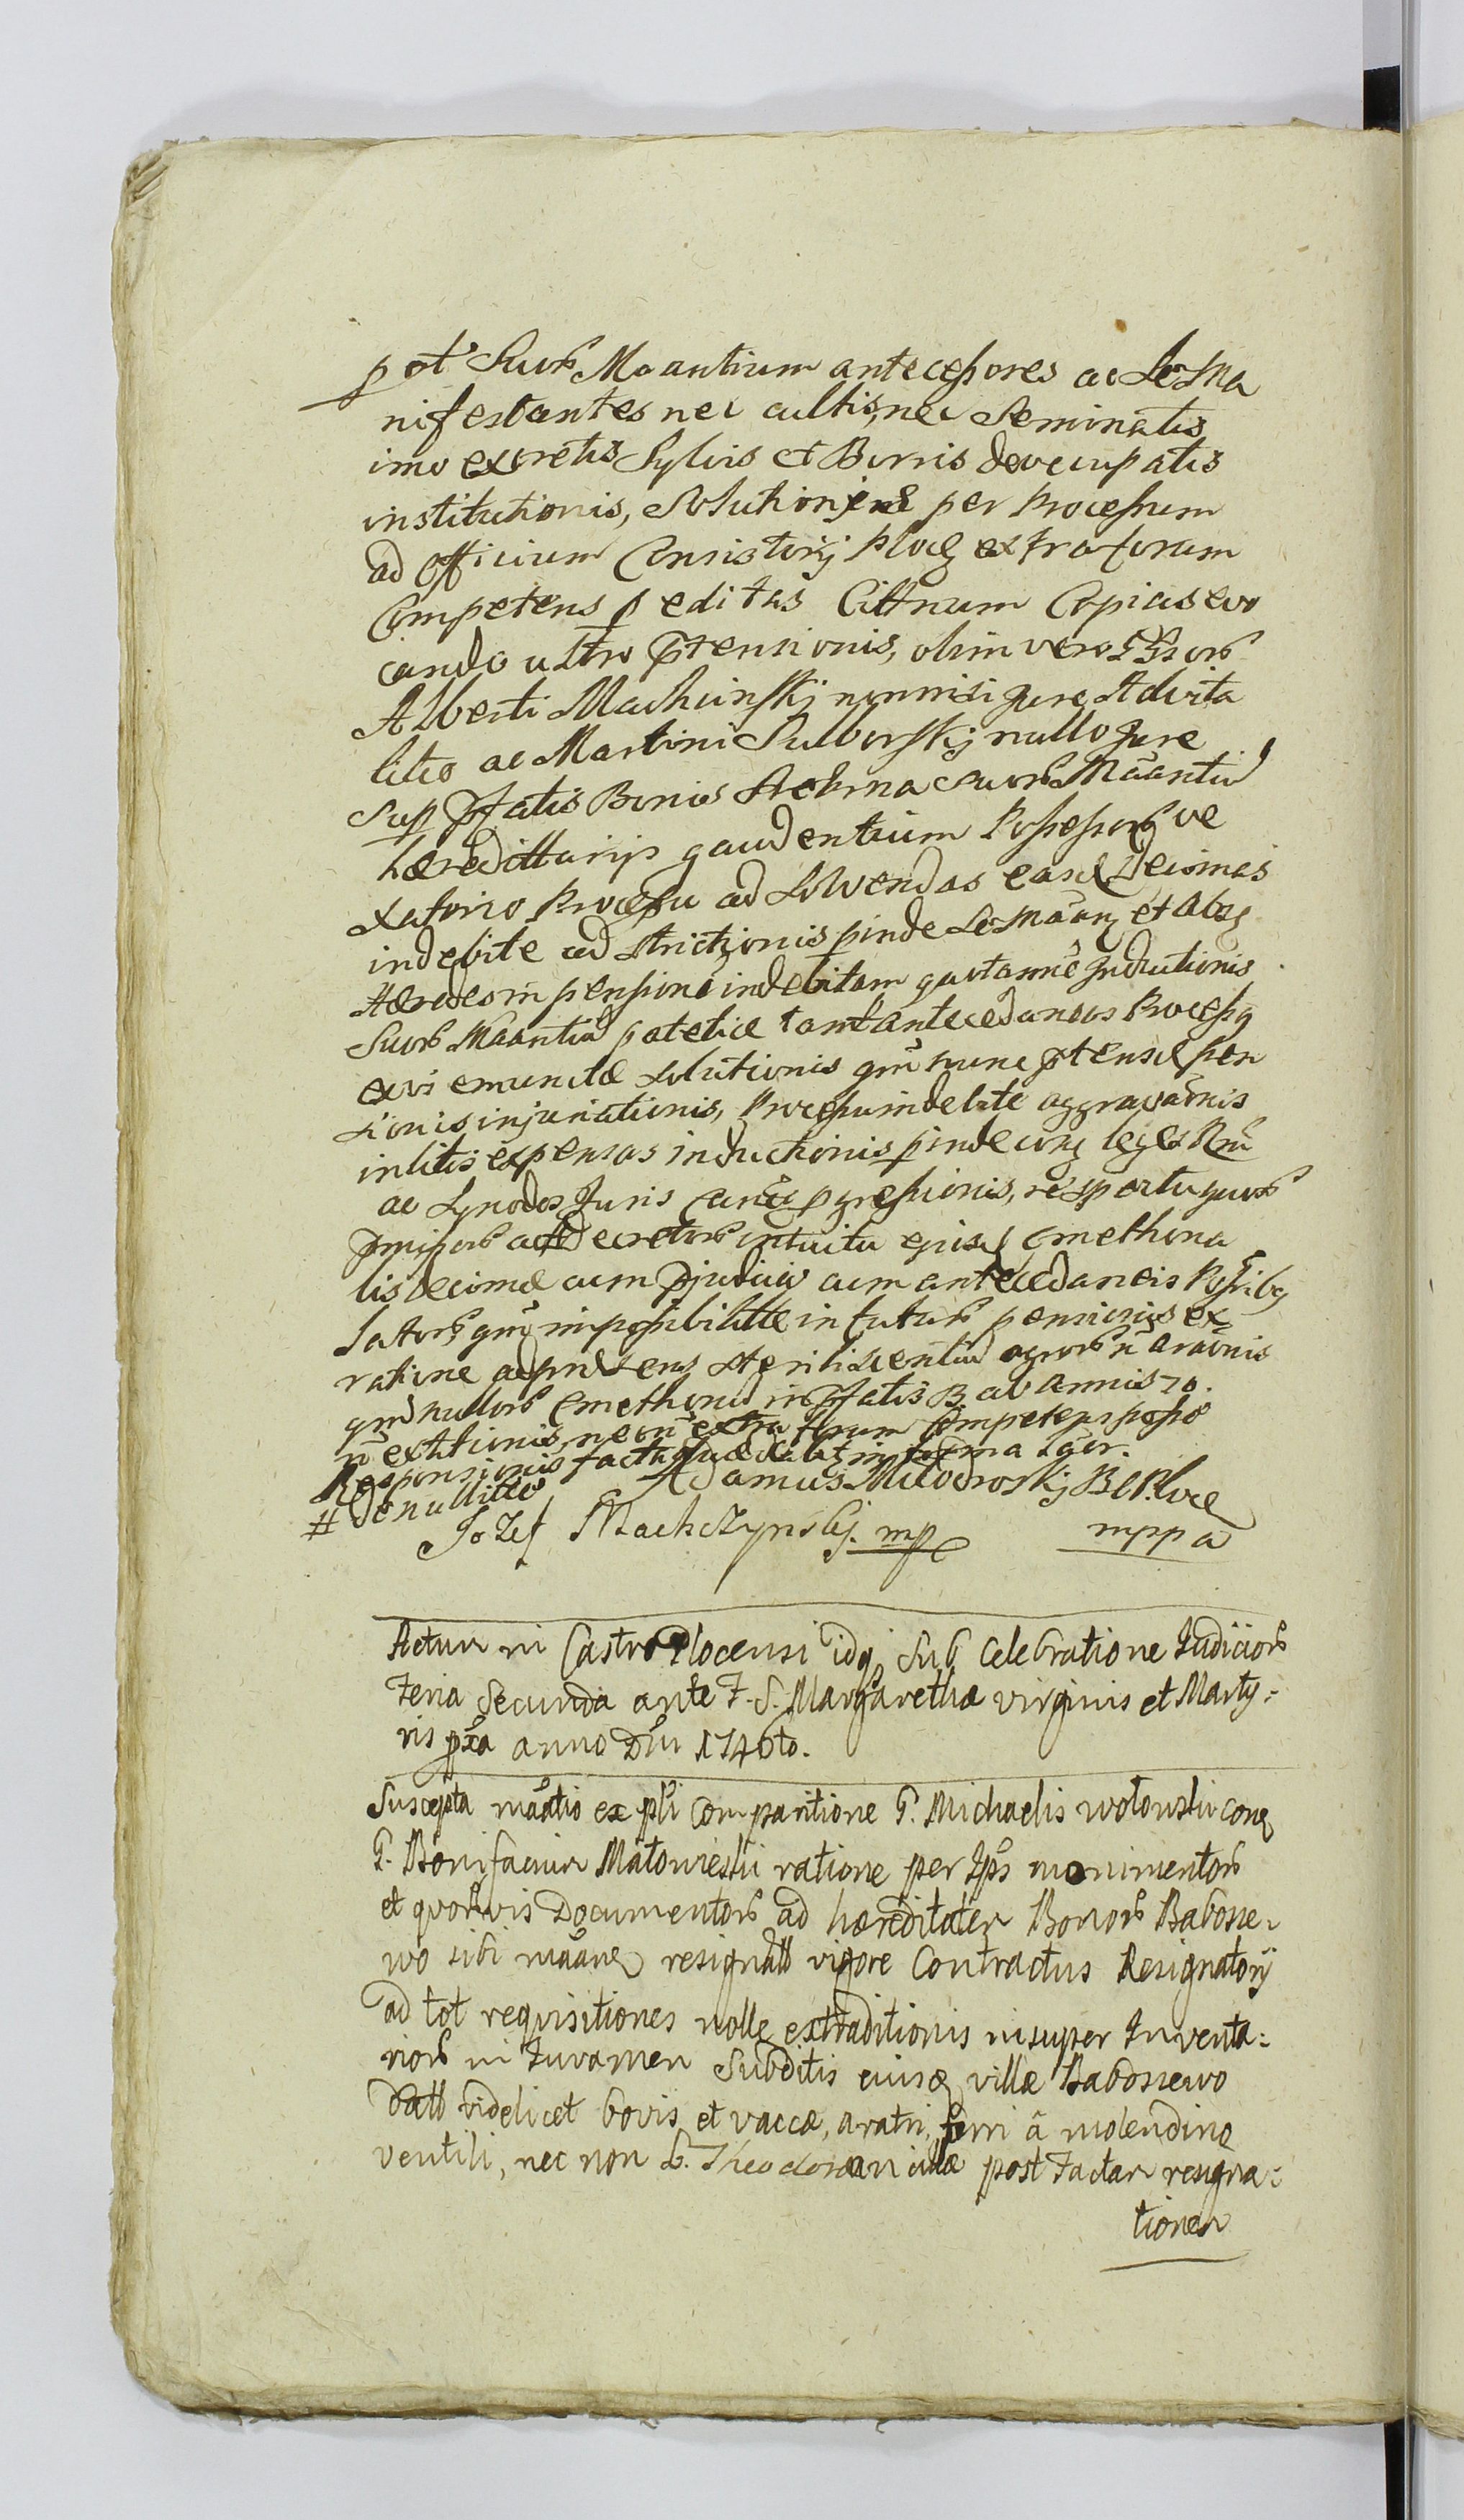 p ot' Suorb Maantium antecessores ac Se Ma
nifestantes nec cultis, nec Seminatis
imo excretis Sylvis et Borris
institutionis, Solutionis per Processum
ad Officium Consistorij Ploc extra forum
Competens p editas Cittnum Copias evo
cando ultro ptensionis, olim vero GGsorb
Alberti Machcinskj nonnisi Jure Advita
litio ac Martini Sulborskj nullo Jure
Sup pfatis Bonis Srebrna Suorb Maantiu
hæredittarijs gaudentium Possessorb ve
xatorio Processu ad Solvendas easd Decimas
indebite ad strictionis pinde Se Maang et absq
Hæredes in pensione indebitam Inductionis
Suorb Maantiu tam antecedaneos Processq
exvi emuncitæ Solutionis qm nunc ptensæ pen
sionis injuriationis, Processu indebite aggravaonis
in litis expensas inductionis pinde conq leges Rni
ac Synodos Juris pgressionis, respectu quorb
pmissorb Decretorb intuitu ejusd Cmethona
lis decimæ cum pjudicio cum antecedaneis Possribq
latorb qm impossibilitte in futurb pensionis ex
ratione adpræsens steriliscentiu agrorb n araonis
qm nullorb Cmethonu in pfatis B. ab annis 70.
n extitionis, necn extra forum Competens
Responsionis facta in forma
# de nullitte Adamus Milodroskj B C Ploc
Jozef Machczynskj. mp mppa
Actum in Castro Plocensi idq Sub Celebratione Judiciorb
Feria Secunda ante F. S. Margarethæ virginis et Marty=
ris pxa anno Dni 1746to.
Suscepta maatio ex pli Comparitione G. Michaelis wołowski conq
G. Bonifacium Matowieski ratione per Ips monimentorb
et quorvis Documentorb ad hæreditatem Bonorb Babosze=
wo sibi maang resignatt vigore Contractus Resignatorij
ad tot requisitiones nolle extraditionis insuper Inventa=
riorb in Juramen Subditis eiusd villæ Baboszewo
datt videlicet bovis et vaccæ, aratri, ferri â molendino
ventili, nec non G. Theodoræ post factam resigna=
tionem